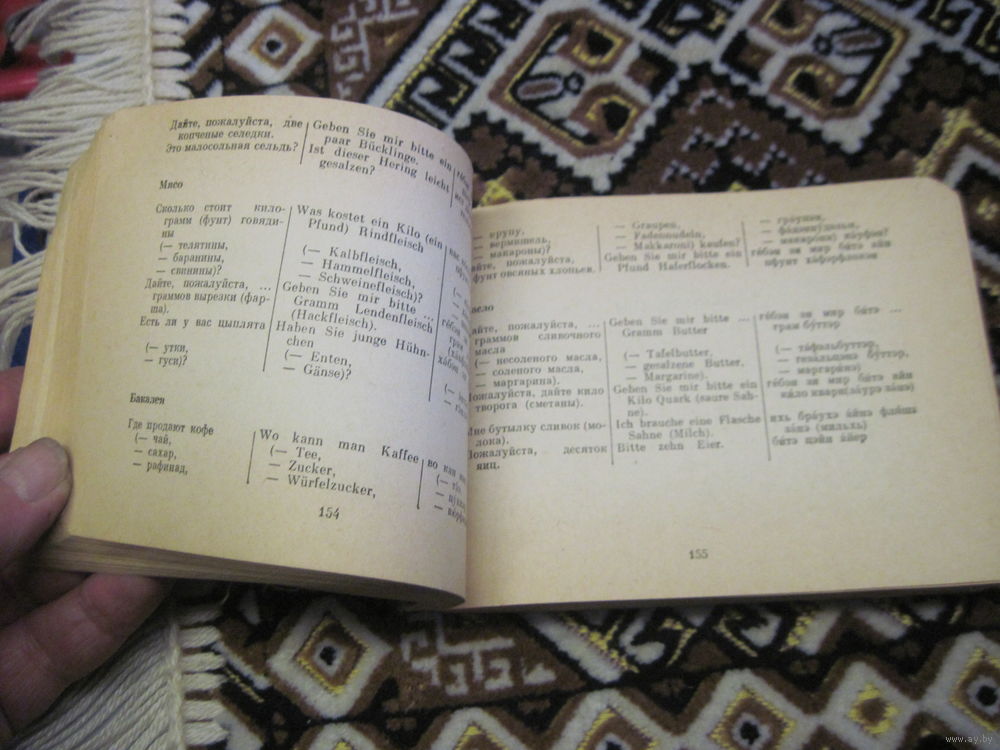 Дайте, пожалуйста, две
копченые селедки.
Это малосольная сельдь?
Geben Sie mir bitte ein
paar Bücklinge.
Ist dieser Hering leicht
gesalzen?
Мясо
Сколько стоит кило-
грамм (фунт) говяди-
ны
(— телятины,
— баранины,
— свинины)?
Дайте, пожалуйста, ...
граммов вырезки (фар-
ша).
Есть ли у вас цыплята
(— утки,
— гуси)?
Was kostet ein Kilo (ein
Pfund) Rindfleisch
(— Kalbfleisch,
— Hammelfleisch,
— Schweinefleisch)?
Geben Sie mir bitte ...
Gramm Lendenfleisch
(Hackfleisch).
Haben Sie junge Hühn-
chen
(— Enten,
— Gänse)?
Бакалея
Где продают кофе
(— чай,
— сахар,
— рафинад,
Wo kann man Kaffee
(— Tee,
— Zucker,
— Würfelzucker,
во кан
154
— крупу,
— вермишель,
— макароны)?
пожалуйста,
фунт овсяных хлопьев.
— Graupen,
— Fadennudeln,
— Makkaroni) kaufen?
Geben Sie mir bitte ein
Pfund Haferflocken.
— гра́упен,
гебэн зи мир битэ айн
пфунт
пожалуйста, ...
граммов сливочного
масла
(— несоленого масла,
— соленого масла,
— маргарина).
Пожалуйста, дайте кило
творога (сметаны).
Мне бутылку сливок (мо-
лока).
Пожалуйста, десяток
яиц.
Geben Sie mir bitte ...
Gramm Butter
(— Tafelbutter,
— gesalzene Butter,
— Margarine).
Geben Sie mir bitte ein
Kilo Quark (saure Sah-
ne).
Ich brauche eine Flasche
Sahne (Milch).
Bitte zehn Eier.
ге́бэн зи мир би́тэ ...
грам бу́ттэр
(— та́фэльбуттэр,
— геза́льцэнэ бу́ттэр,
— маргари́нэ)
ге́бэн зи мир би́тэ айн
ки́ло кварк(за́урэ за́нэ)
ихь бра́ухэ а́йнэ фла́шэ
за́нэ (мильх)
би́тэ цэйн а́йер
155
www.ay.by